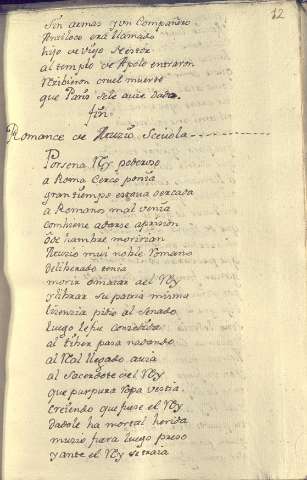 12
Sin armas y un Compañero
Antiloco era llamado
hijo de viejo Nestor
al templo de Apolo entraron
Recibieron cruel muerte
que Paris se le avie dado.
fin.
Romance de Muzio Scevola
Porsena Rey poderoso
a Roma Cerco ponia
gran tiempo estava cercada
a Romanos mal venia
combiene a darse a prision
ò de hambre moririan
Muzio mui noble Romano
deliberado tenia
morir ò matar al Rey
y librar su patria misma
Lizenzia pidio al Senado
luego le fue conzedida
al tiber pasa nadando
al Real llegado avia
al Sacerdote del Rey
que purpura ropa vestia
creiendo que fuese el Rey
dadole ha mortal herida
muzio fuera luego preso
y ante el Rey se traia